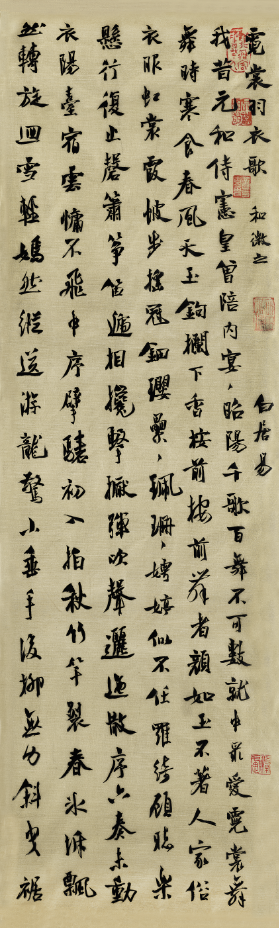 霓裳羽衣歌 和微之 白居易
我昔元和侍憲皇曾陪内宴〻昭陽千歌百舞不可數就中最愛霓裳舞
舞時寒食春風天玉鉤欄下香按前按前舞者顔如玉不著人家俗
衣服虹裳霞帔步摇冠鈿瓔纍〻珮珊〻娉婷似不任羅綺顧聽樂
懸行復止磬簫箏笛遞相攙擊擫彈吹聲邐迤散序六奏未動
衣陽臺宿雲慵不飛中序擘騞初入拍秋竹竿裂春冰拆飄
然轉旋迴雪輕嫣然縱送游龍驚小垂手後柳無力斜曳裾